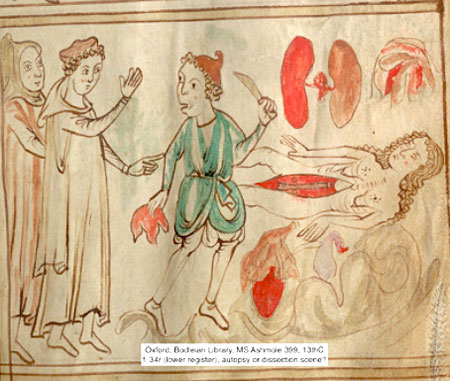 Oxford, Bodleian Library, MS Ashmole 399, 13thC
f. 34r (lower register), autopsy or dissection scene?